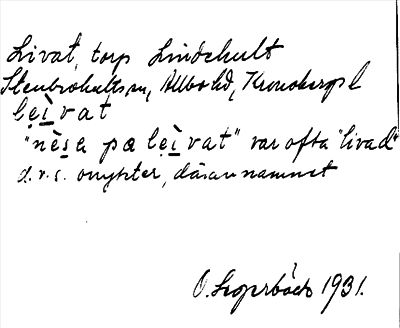 Livat, torp Lindhult
Stenbrohults sn, Allbo hd, Kronobergs l
lẹì̱vat
"nèsa pa lẹì̱vat" var ofta "livad"
d.v.s. onykter, därav namnet
O. Segerbäck 1931.